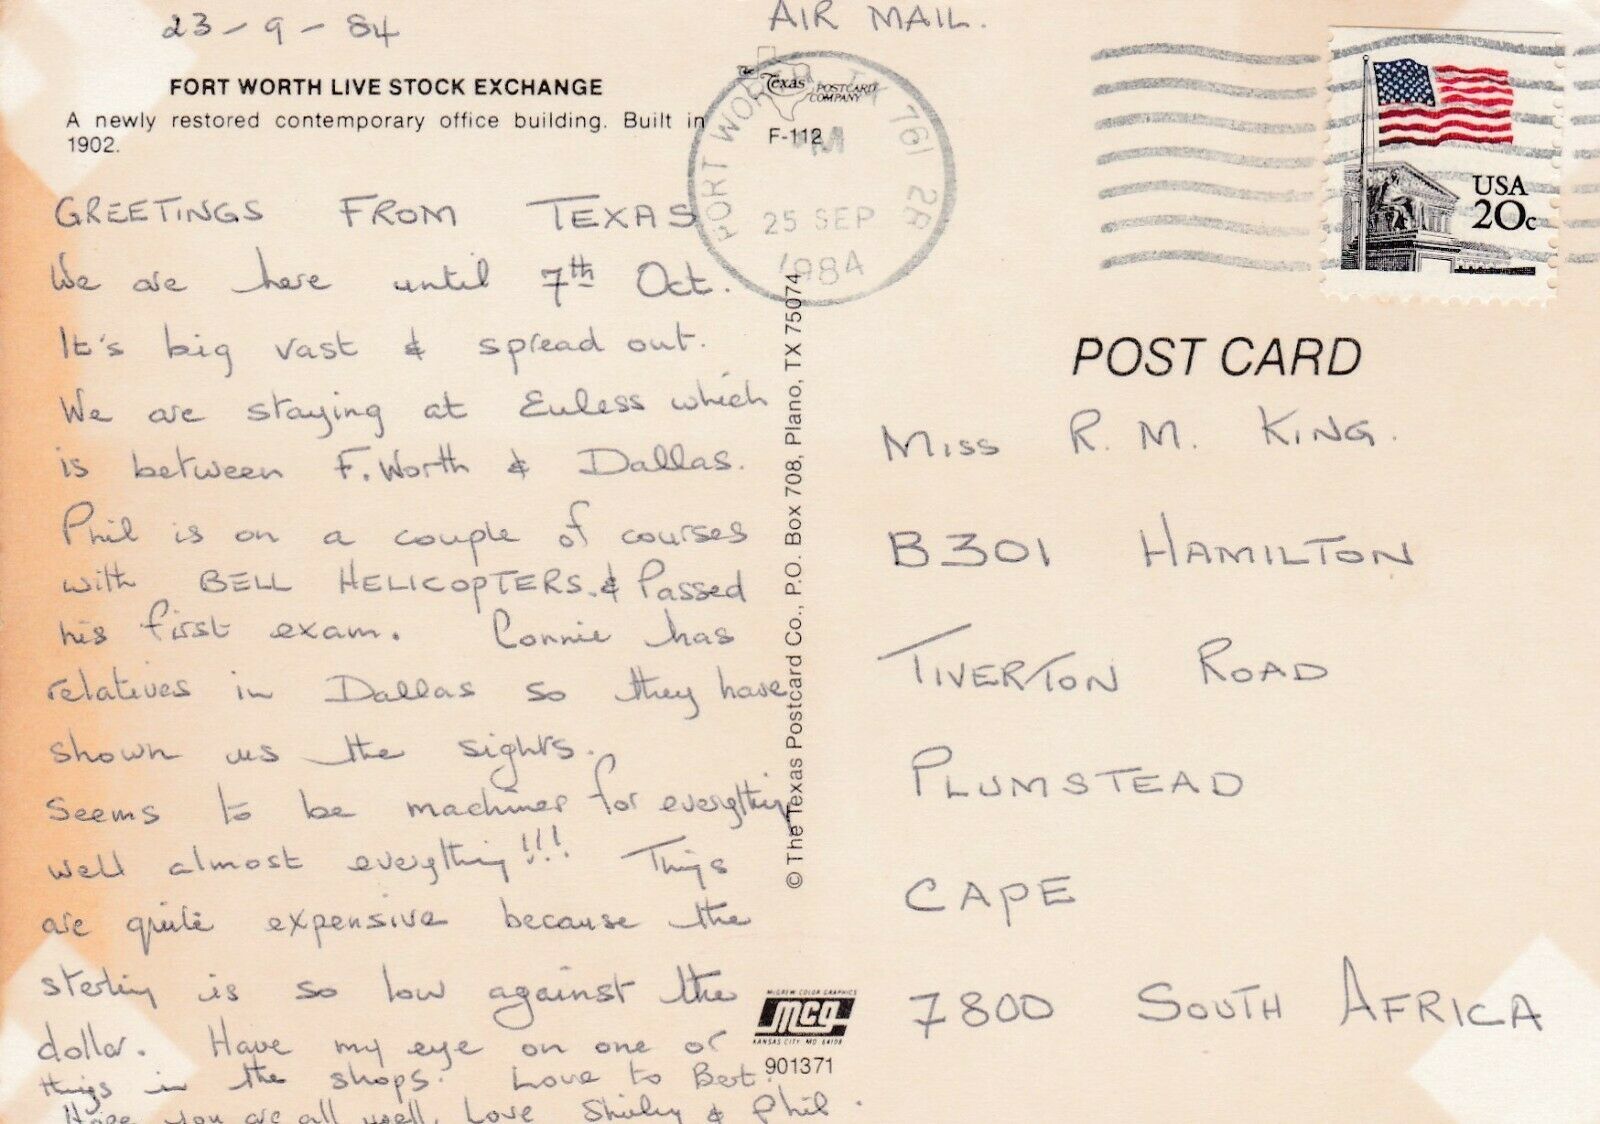 23-9-84
AIR MAIL.
FORT WORTH LIVE STOCK EXCHANGE
A newly restored contemporary office building. Built in
1902.
The Texas POSTCARD COMPANY
F-112
FORT WORTH, TX 761 2A
PM
25 SEP
1984
USA
20c
GREETINGS FROM TEXAS
We are here until 7th Oct.
It's big vast & spread out.
We are staying at Euless which
is between F. Worth & Dallas.
Phil is on a couple of courses
with BELL HELICOPTERS. & Passed
his first exam. Connie has
relatives in Dallas so they have
shown us the sights.
Seems to be machines for everything
well almost everything!!! Things
are quite expensive because the
sterling is so low against the
dollar. Have my eye on one or
things in the shops. Love to Bert.
Hope you are all well. Love Shirley & Phil.
© The Texas Postcard Co., P.O. Box 708, Plano, TX 75074
McGREW COLOR GRAPHICS
mcg
KANSAS CITY, MO 64108
901371
POST CARD
MISS R. M. KING.
B301 HAMILTON
TIVERTON ROAD
PLUMSTEAD
CAPE
7800 SOUTH AFRICA